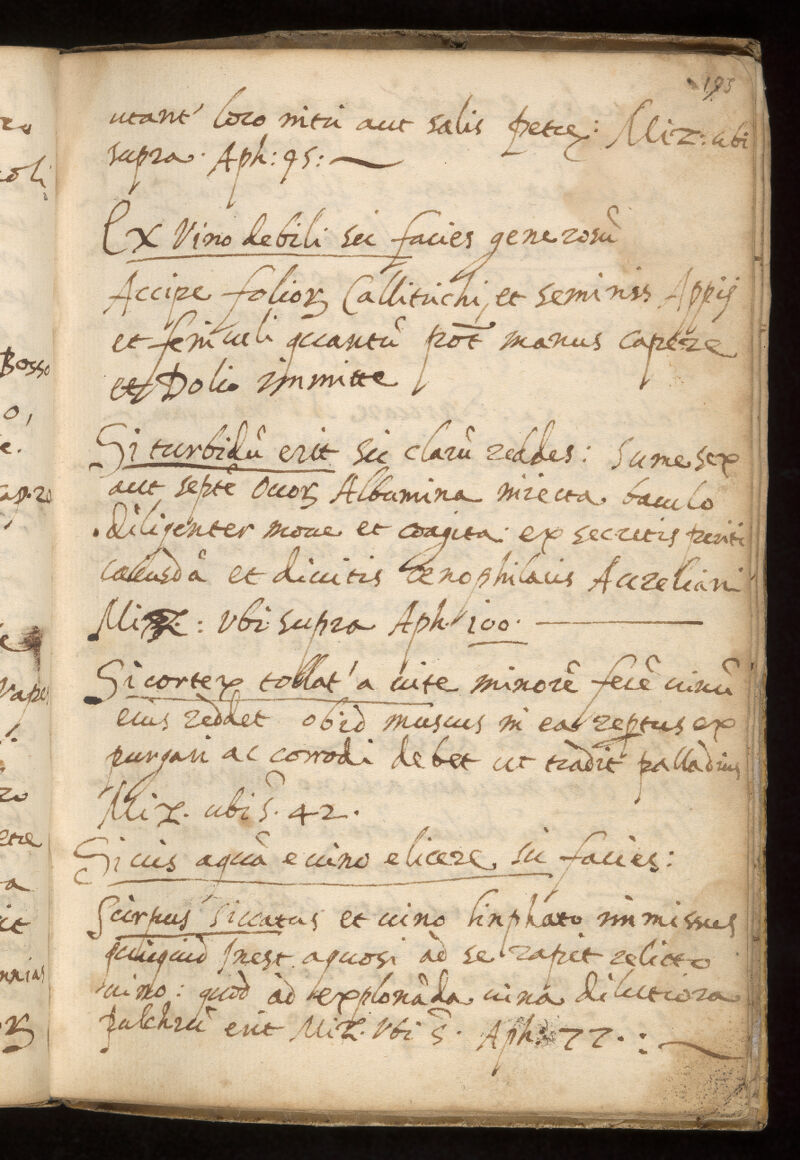 193
utant' loco nitri aut salis petre: Miz: ubi
supra. Aph: 95:
Ex Vino debili sic facies generosū
Accipe folioꝝ Callitrichi, et seminis Appij
et feniculi quantū pōt manus capere
et Dolio immitte
Si turbidū erit sic clarū reddes: Sume sex
aut septē Ovoꝝ Albumina iniecta baculo
diligenter move et coagita: ex secretis periti
cuiusdā et divitis oenophilacis Aureliani
Miz.: Vbi supra Aph 100.
Si cortex tollat' a vite minorē fecē vinū
eius reddet ob id muscus in ea reptus ex
purgari ac corrodi debet ut tradit palladius
Miz. ubi s̄. 42.
Si vis aquā e vino elicere, sic facies:
Scirpus Siccatus et vino linphato immissus
quicquid Inest aquosi ad se rapiet relicto
vino: quod ad explorāda vina dilutiora
pulchrū erit Miz. Vbi s̄. Aph: 77.:
Bosso
o,
e.
vape
ro
etre
a
it
mnias
oꝝ